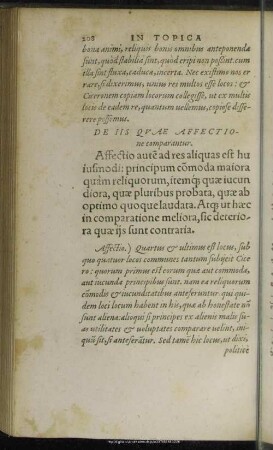 208 IN TOPICA
bona animi, reliquis bonis omnibus anteponenda
sunt, quòd stabilia sint, quòd eripi non possint. cum
illa sint fluxa, caduca, incerta. Nec existimo nos er
rare, si dixerimus, unius rei multos esse locos: &
Ciceronem copiam locorum collegisse, ut ex multis
locis de eadem re, quantum uellemus, copiosè disse-
rere possimus.
DE IIS QVAE AFFECTIO
ne comparantur.
Affectio autē ad res aliquas est hu
iusmodi: principum cōmoda maiora
quàm reliquorum, itemq́; quæ iucun
diora, quæ pluribus probata, quæ ab
optimo quoque laudata. Atq; ut hæc
in comparatione meliora, sic deterio-
ra quæ ijs sunt contraria.
Affectio.) Quartus & ultimus est locus, sub
quo quatuor locos communes tantum subijcit Cice
ro: quorum primus est eorum quæ aut commoda,
aut iucunda principibus sunt. nam ea reliquorum
cōmodis & iucunditatibus anteferuntur. qui qui-
dem loci locum habent in his, quæ ab honestate nō
sunt aliena: alioqui si principes ex alienis malis su-
as utilitates & uoluptates comparare uelint, ini-
quū sit, si anteferātur. Sed tamē hic locus, ut dixi,
politicè